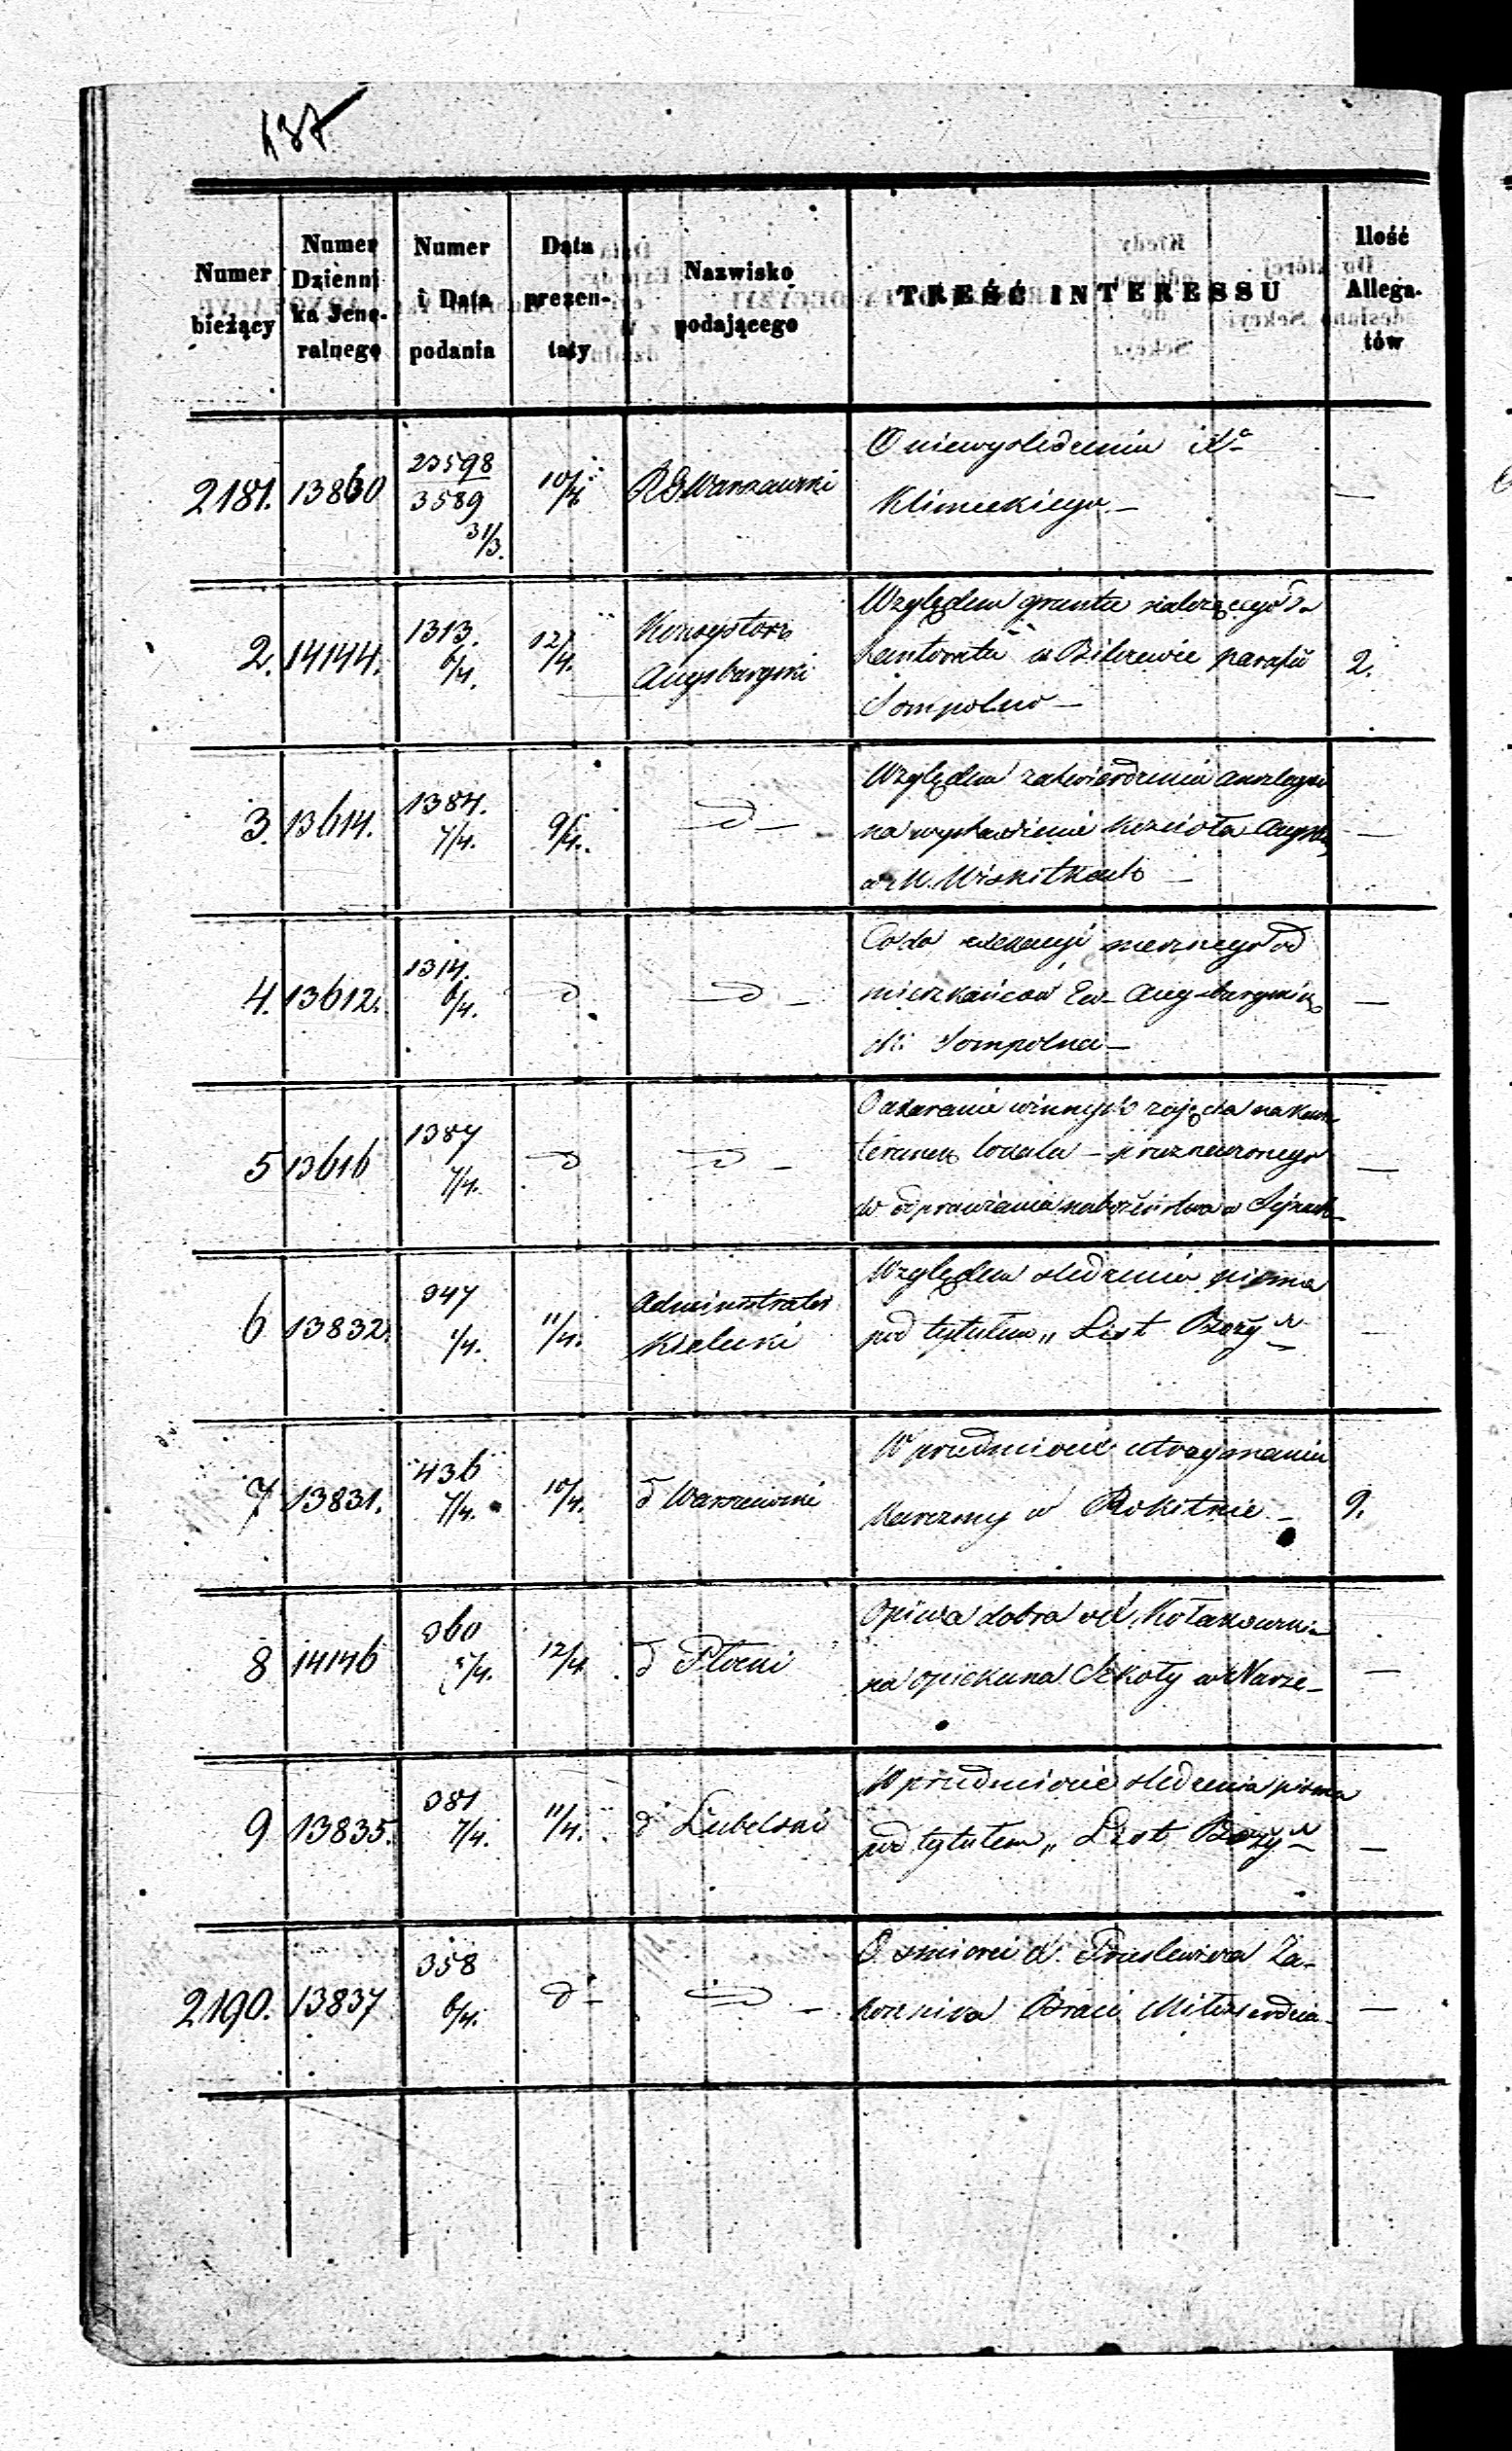 437
Numer bieżący
Numer Dzienni ka Jene- ralnego
Numer i Data podania
Data prezen- taty
Nazwisko podającego
TREŚĆ INTERESSU
Ilość Allega- tów
2181. 13860 23598/3589 31/3. 10/4 R G Warszawski
O niewyśledzeniu Xa
Klimeckiego. —
—
2. 14144. 1313. 6/4. 12/4. Konsystorz Augsburgski
Względem gruntu należącego do
kantoratu w Bilczewie parafii
Sompolno —
2.
3. 13614. 1384. 7/4. 9/4. — d —
Względem zatwierdzenia anszlagu
na wystawienie kościoła Augsb.
w M. Wiskitkach —
—
4. 13612. 1314. 6/4. d — d —
Co do mesznego od
mieszkańców Ew. Augsburgskich
Sompolna —
—
5 13616 1387 7/4. d — d —
O ukaranie winnych zajęcia na kwa
terunek lokalu — przeznaczonego
do odprawiania nabożeństwa w Sejnach
—
6 13832. 947 1/4. 11/4. Administrator Kielecki
Względem śledzenia pisma
pod tytułem „List Boży"
—
7 13831. 436 7/4. 10/4. d Warszawski
W przedmiocie utrzymania
karczmy w Rokitnie —
9.
8 14146 360 5/4. 12/4 d Płocki
Opieka dobra Kołakowski
na opiekuna Szkoły w
—
9 13835. 381 7/4. 11/4. d Lubelski
W przedmiocie śledzenia pisma
pod tytułem „List Boży"
—
2190. 13837 358 6/4. d — d —
O śmierci X. Za-
konnika Braci Miłosierdzia
—